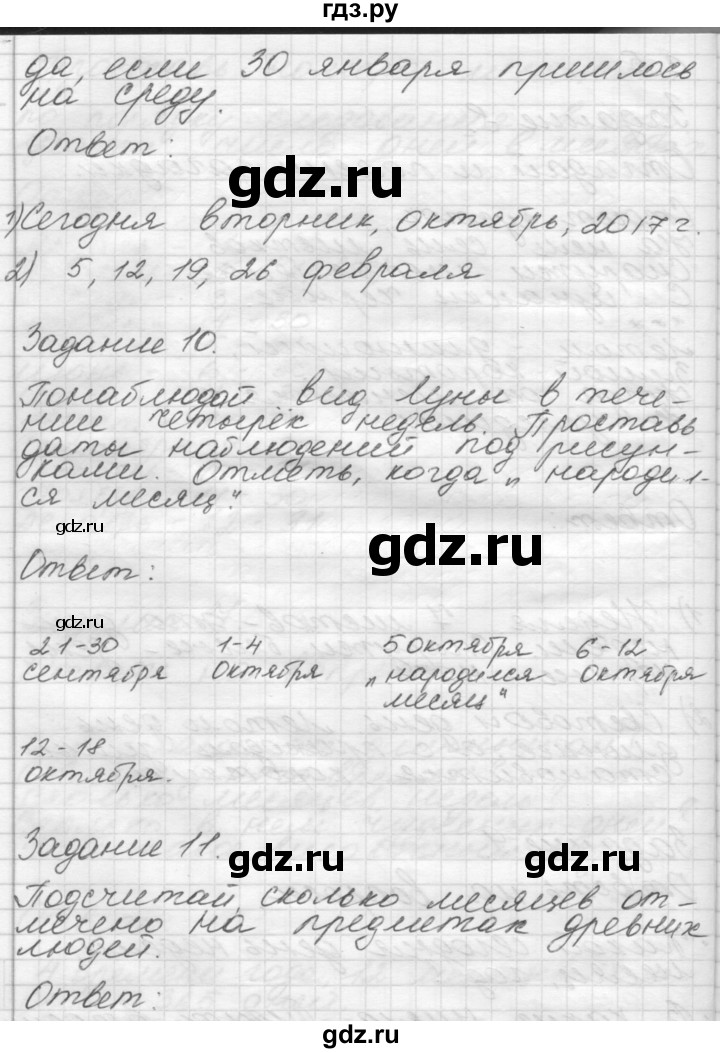 гдз.ру
да, если 30 января пришлось
на среду.
Ответ:
gdz.ru
1) Сегодня вторник, октябрь, 2017 г.
2) 5, 12, 19, 26 февраля
Задание 10.
Понаблюдай вид Луны в тече-
нии четырёх недель. Проставь
даты наблюдений под рисун-
ками. Отметь, когда „народил-
ся месяц".
gdz.ru
gdz.ru
Ответ:
gdz.ru
21-30 1-4 5 октября 6-12
сентября октября „народился октября
месяц"
12-18
октября.
Задание 11.
gdz.ru gdz.ru
Подсчитай, сколько месяцев от-
мечено на предметах древних
людей.
Ответ:
gdz.ru